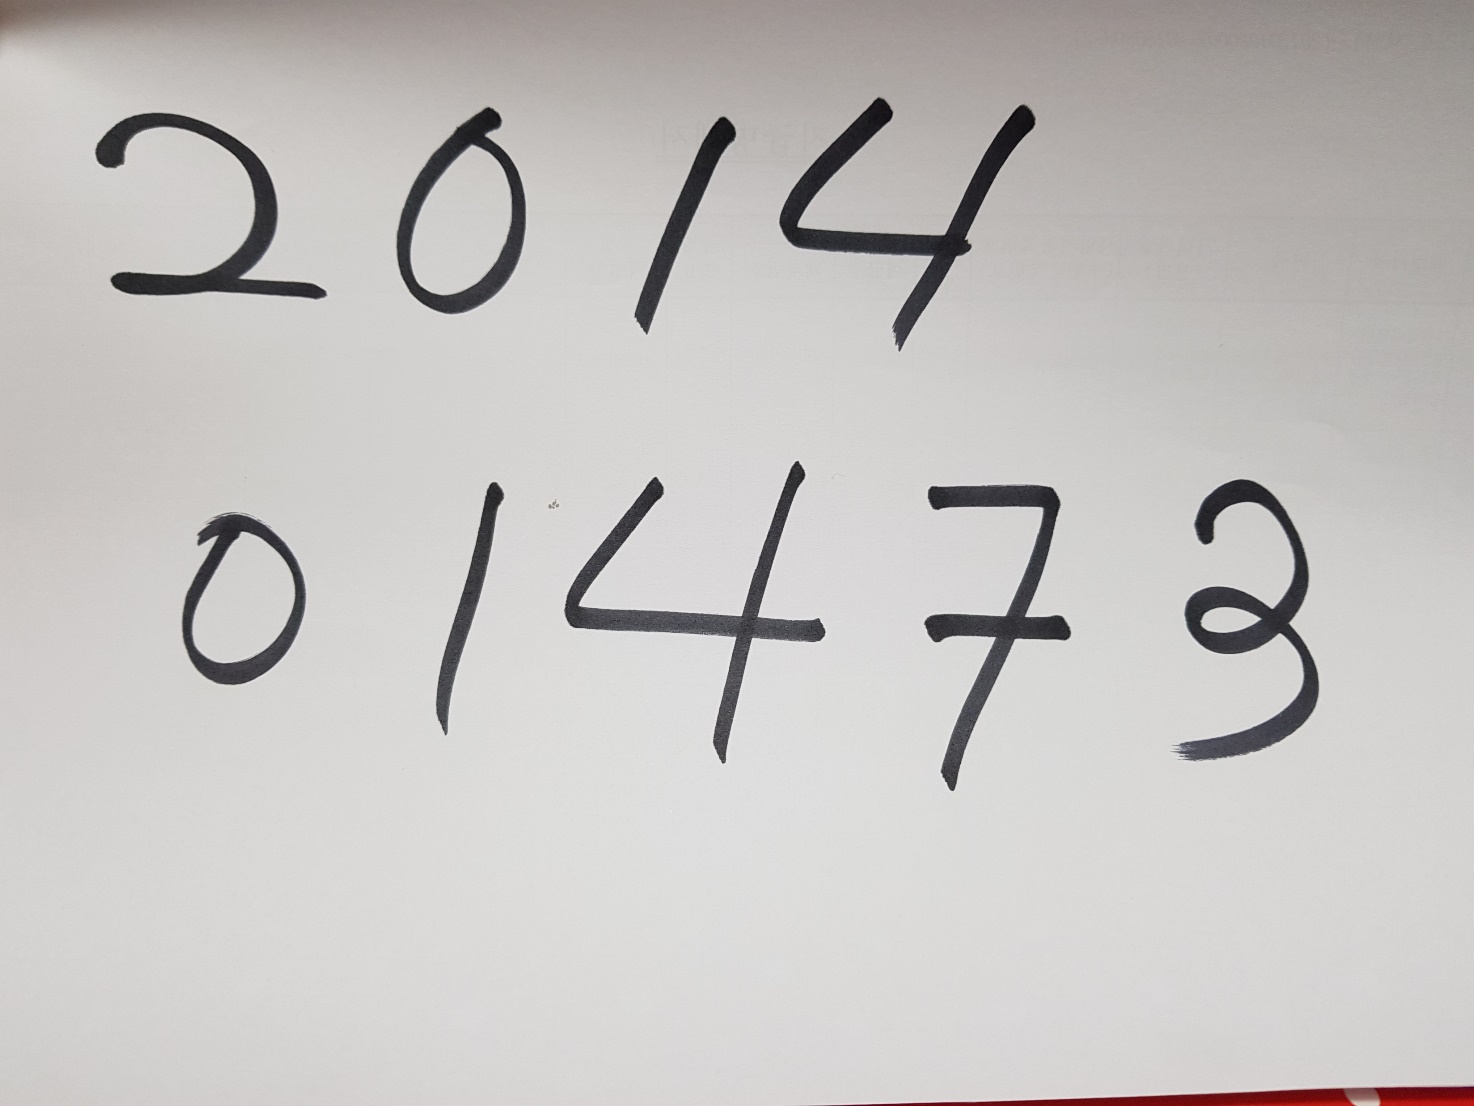 2014
01473